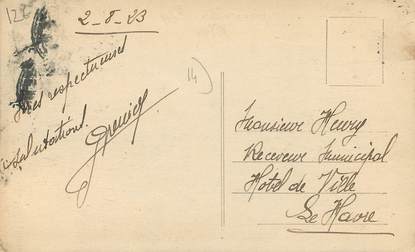 2-8-23
Mes respectueuses
Salutations.
14)
Monsieur Henry
Receveur Municipal
Hotel de Ville
Le Havre